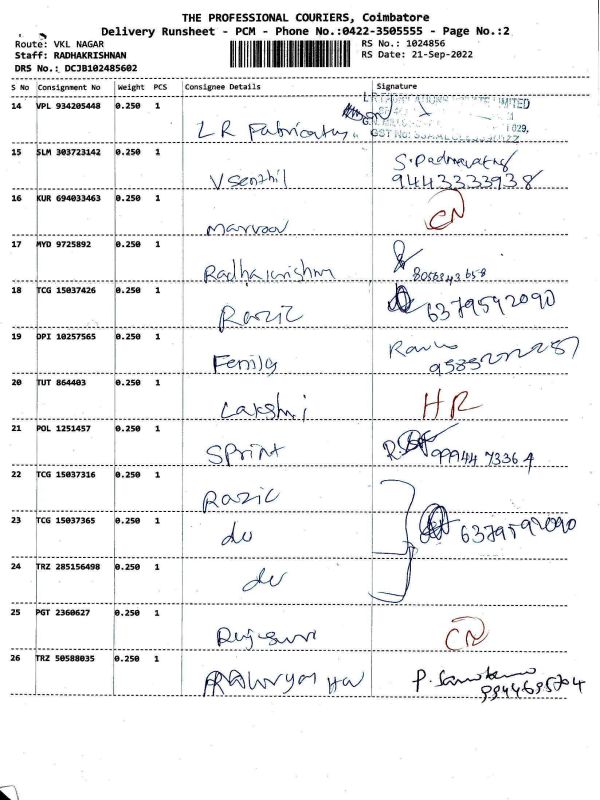 THE PROFESSIONAL COURIERS, Coimbatore
Delivery Runsheet - PCM - Phone No.:0422-3505555 - Page No.:2
Route: VKL NAGAR RS No.: 1024856
Staff: RADHAKRISHNAN RS Date: 21-Sep-2022
DRS No.: DCJB102485602
S No Consignment No Weight PCS Consignee Details Signature
14 VPL 934205448 0.250 1
LR Fabricators
15 SLM 303723142 0.250 1 S. Padmavathy
V Senthil 9443333938
16 KUR 694033463 0.250 1 CN
17 MYD 9725892 0.250 1
Radhakrishnan 8056343658
18 TCG 15037426 0.250 1
Razic 6379592090
19 OPI 10257565 0.250 1
20 TUT 864403 0.250 1
Lakshmi HR
21 POL 1251457 0.250 1
Sprint 9994473364
22 TCG 15037316 0.250 1
Razic
23 TCG 15037365 0.250 1
do 6379592090
24 TRZ 285156498 0.250 1
do
25 PGT 2360627 0.250 1
CN
26 TRZ 50588035 0.250 1
9944695704